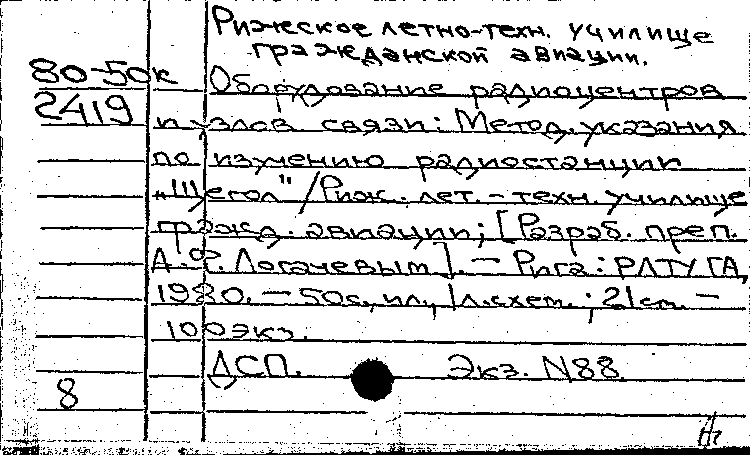 Рижское летно-техн. училище
гражданской авиации.
80-50к
Оборудование радиоцентров
2419
и узлов связи: Метод. указания
по изучению радиостанции
"Щегол" / Риж. лет.-техн. училище
гражд. авиации; [Разраб. преп.
А.Ф. Логачевым]. - Рига: РЛТУГА,
1980. - 50с., ил., 1л.схем.; 21см. -
100экз.
ДСП. Экз. N88.
8